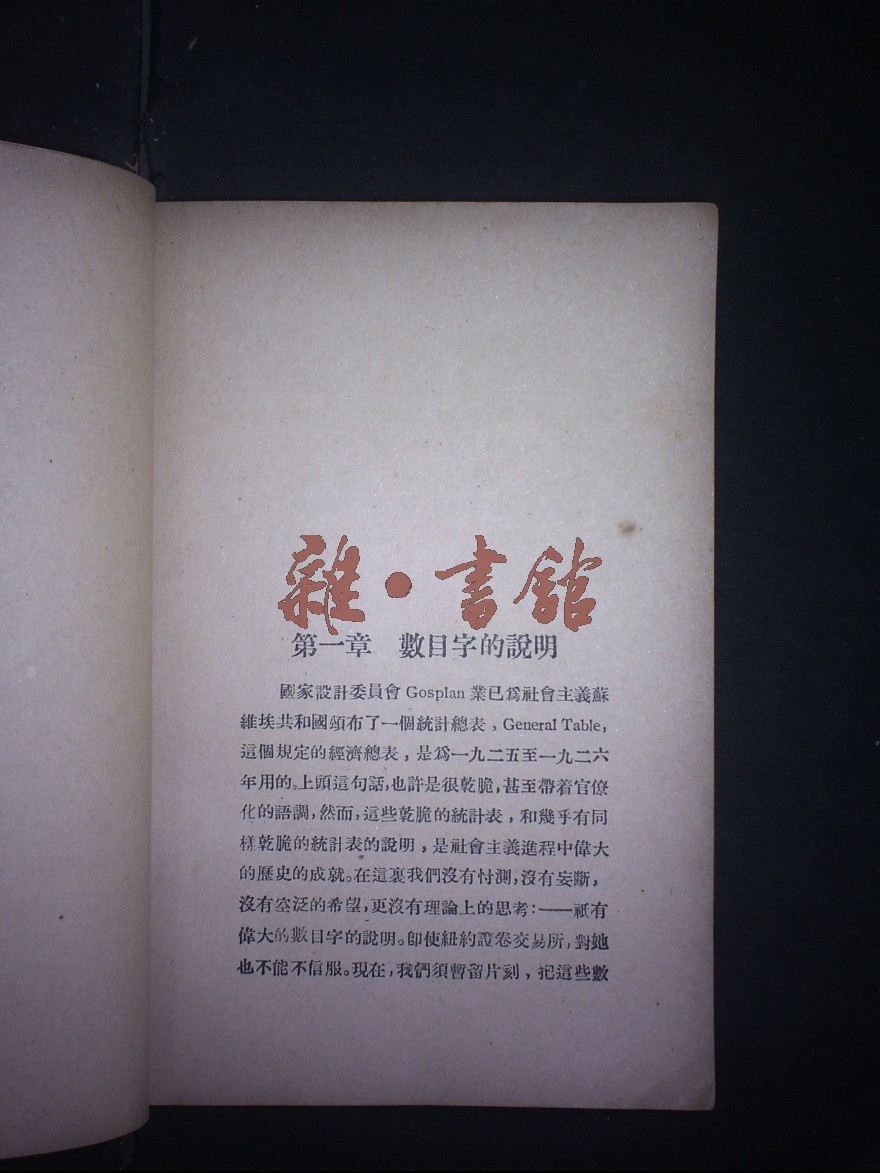 雜·書館
第一章　數目字的說明
國家設計委員會 Gosplan 業已爲社會主義蘇
維埃共和國頒布了一個統計總表，General Table,
這個規定的經濟總表，是爲一九二五至一九二六
年用的。上頭這句話，也許是很乾脆，甚至帶着官僚
化的語調，然而，這些乾脆的統計表，和幾乎有同
樣乾脆的統計表的說明，是社會主義進程中偉大
的歷史的成就。在這裏我們沒有忖測，沒有妄斷，
沒有空泛的希望，更沒有理論上的思考：——祇有
偉大的數目字的說明。卽使紐約證卷交易所，對她
也不能不信服。現在，我們須暫留片刻，把這些數